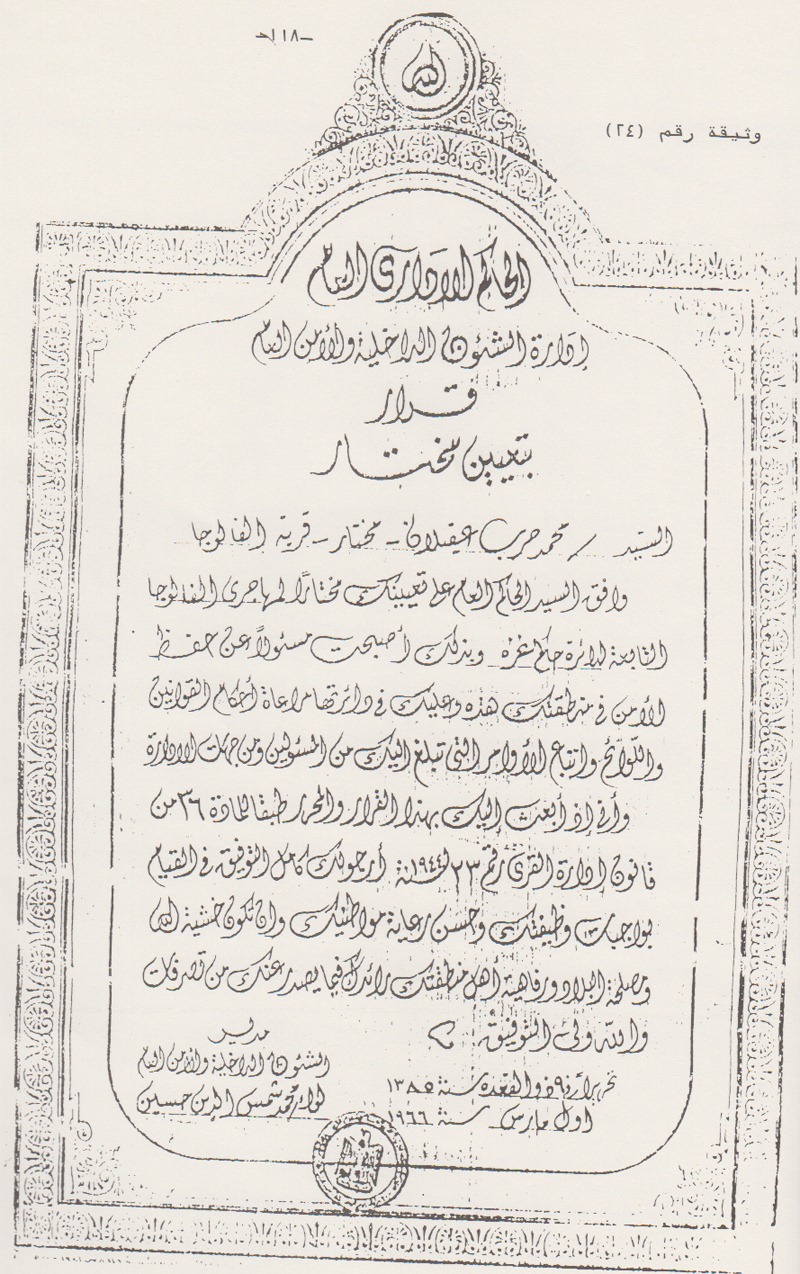 ـ١١٨ـ
الله
وثيقة رقم (٢٤)
الحاكم الإدارى العام
إدارة الشئون الداخلية والأمن العام
قرار
بتعيين مختار
السيد / محمد حرب عقيلان - مختار - قرية الفالوجا
وافق السيد الحاكم العام على تعيينك مختارًا لمهاجرى الفالوجا
التابعة لدائرة حاكم غزه وبذلك أصبحت مسئولاً عن حفظ
الأمن فى منطقتك هذه وعليك فى دائرتها مراعاة أحكام القوانين
واللوائح واتباع الأوامر التى تبلغ اليك من المسئولين ومن جهات الادارة
وأنى إذ أبعث إليك بهذا القرار والمحرر طبقا للمادة ٣٦ من
قانون إدارة القرى رقم ٢٣ لسنة ١٩٤٤ أرجو لك كامل التوفيق فى القيام
بواجبات وظيفتك وحسن رعاية مواطنيك وان تكون خشية الله
ومصلحة البلاد ورفاهية أهل منطقتك رائدك فيما يصدر عنك من تصرفات
والله ولى التوفيق
تحريرا فى ٩ ذو القعده سنة ١٣٨٥
اول مارس سنة ١٩٦٦
مدير
الشئون الداخلية والأمن العام
لواء محمد شمس الدين حسين